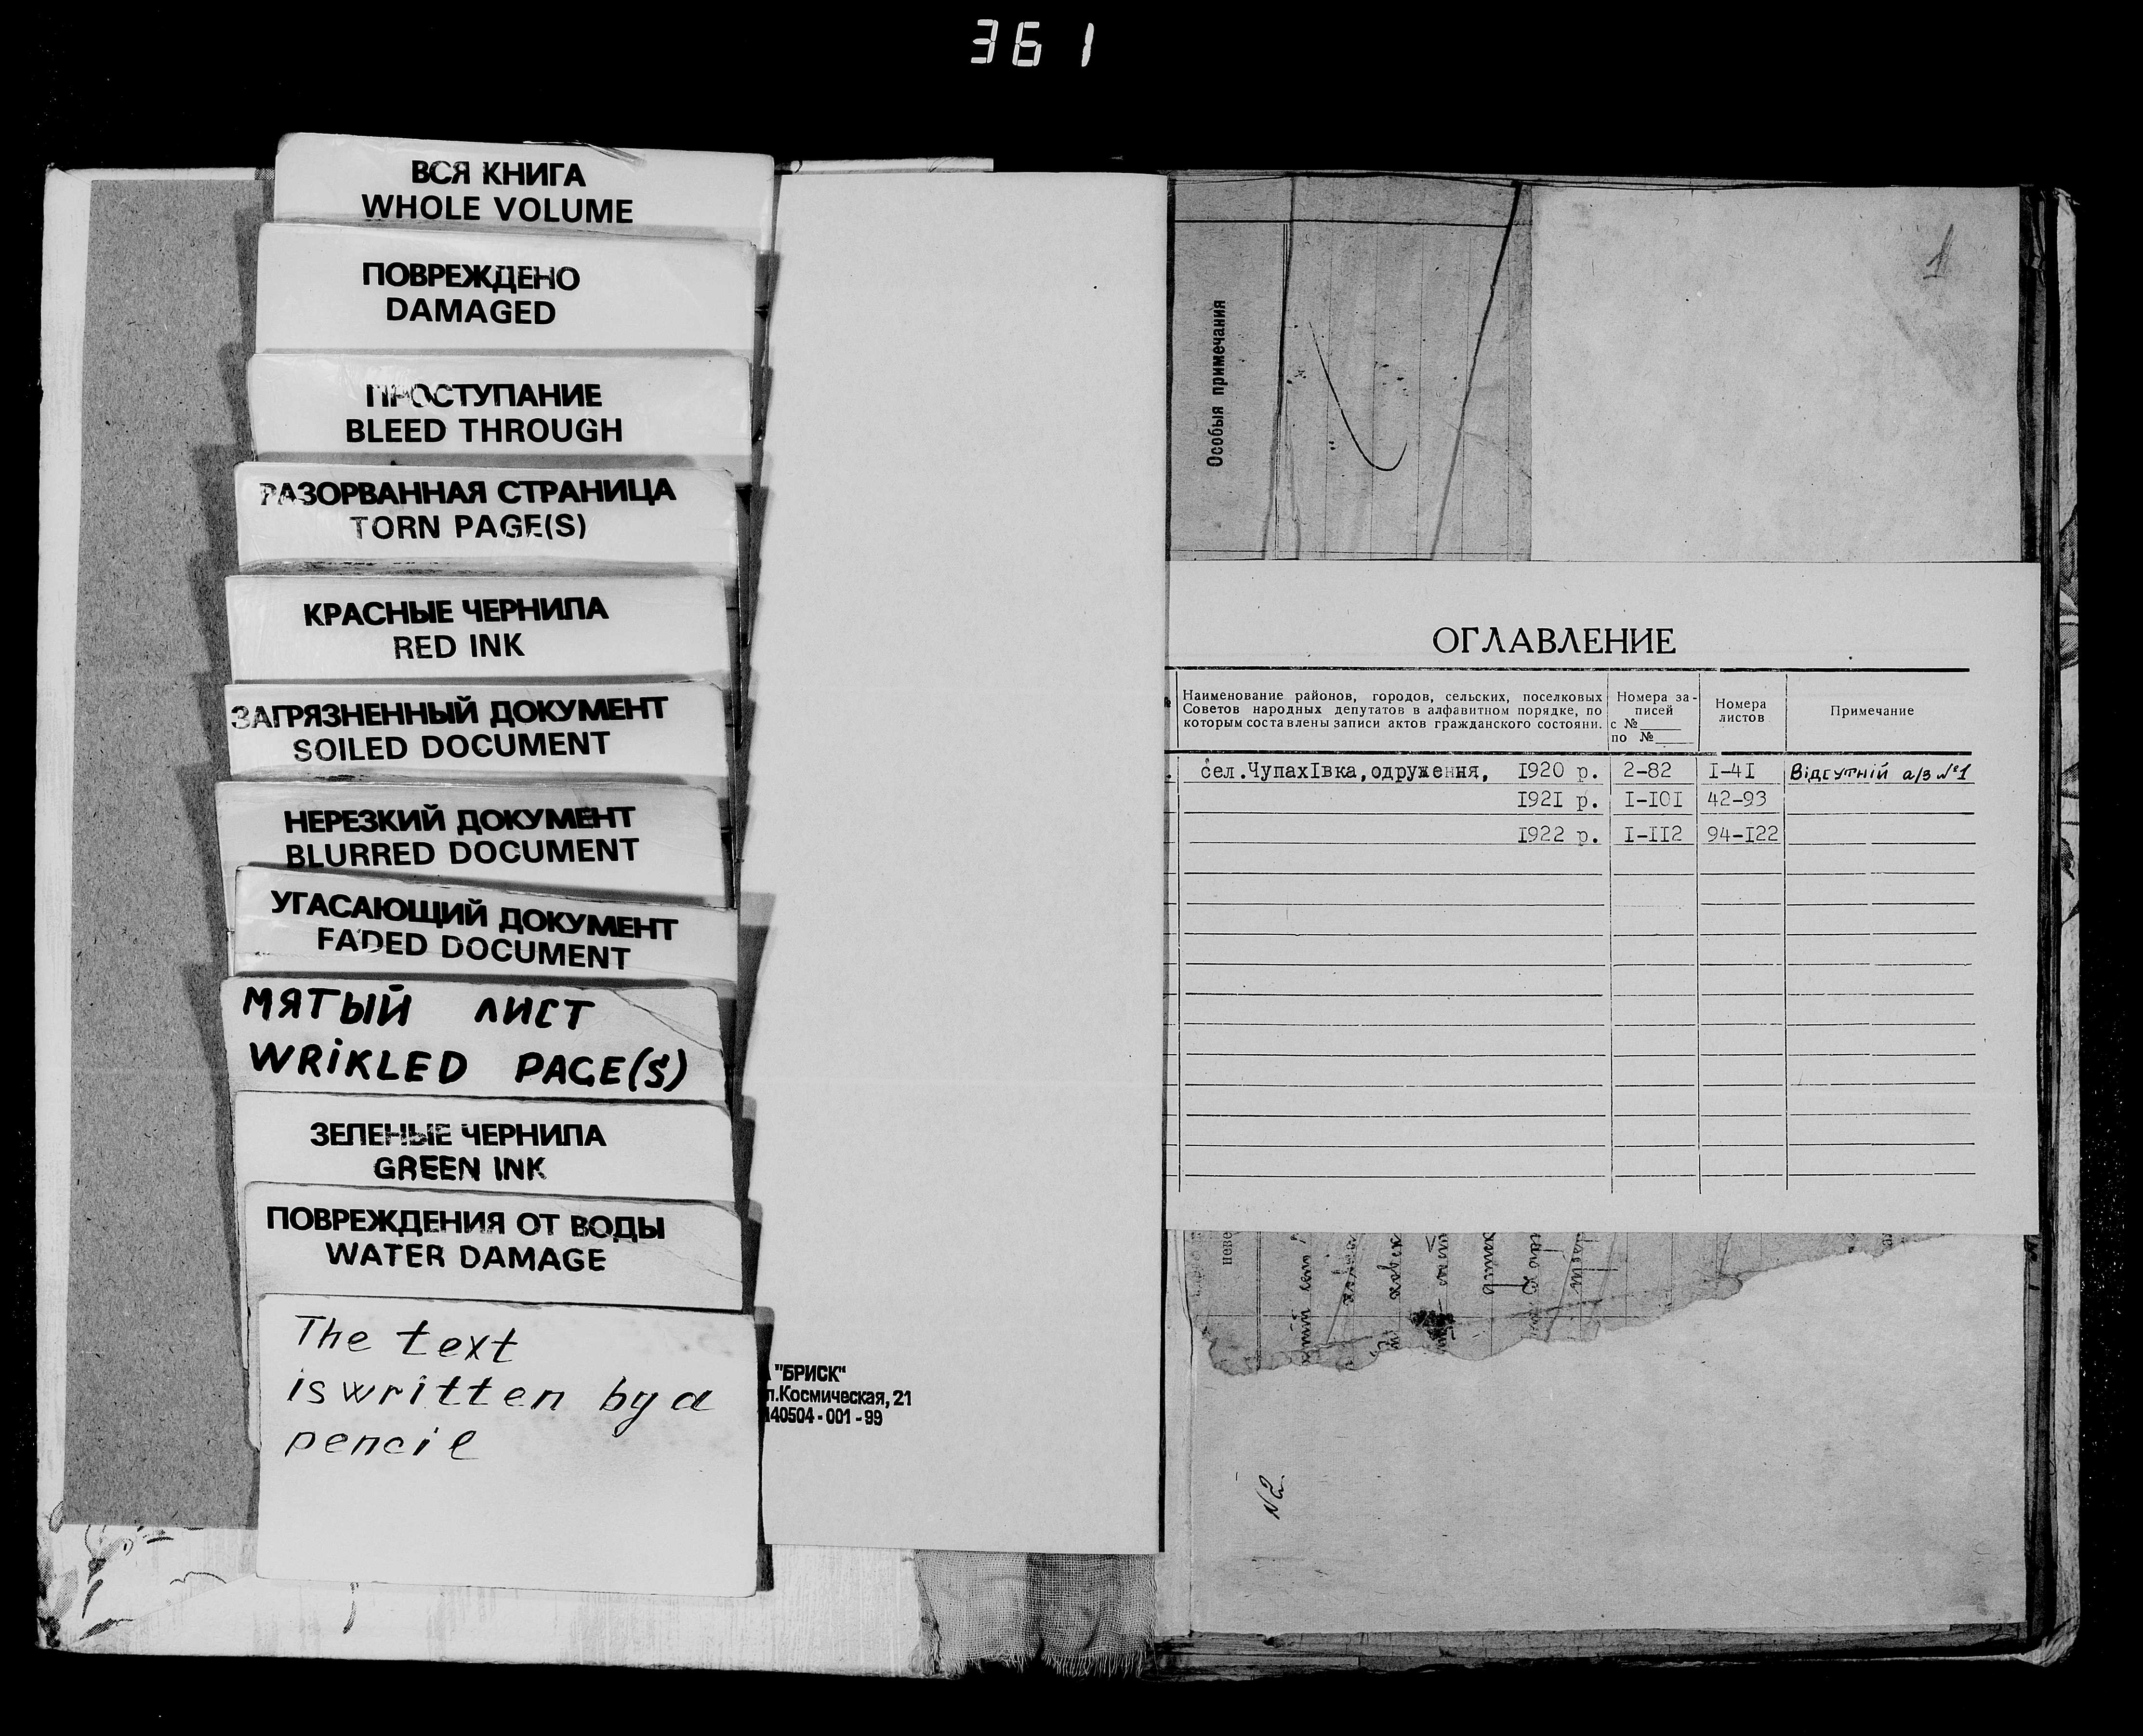 361
ВСЯ КНИГА
WHOLE VOLUME
ПОВРЕЖДЕНО
DAMAGED
ПРОСТУПАНИЕ
BLEED THROUGH
РАЗОРВАННАЯ СТРАНИЦА
TORN PAGE(S)
КРАСНЫЕ ЧЕРНИЛА
RED INK
ЗАГРЯЗНЕННЫЙ ДОКУМЕНТ
SOILED DOCUMENT
НЕРЕЗКИЙ ДОКУМЕНТ
BLURRED DOCUMENT
УГАСАЮЩИЙ ДОКУМЕНТ
FADED DOCUMENT
МЯТЫЙ ЛИСТ
WRiKLED PAGE(S)
ЗЕЛЕНЫЕ ЧЕРНИЛА
GREEN INK
ПОВРЕЖДЕНИЯ ОТ ВОДЫ
WATER DAMAGE
The text
is written by a
pencil
"БРИСК"
л.Космическая, 21
140504-001-99
1
Особыя примечания
ОГЛАВЛЕНИЕ
Наименование районов, городов, сельских, поселковых
Советов народных депутатов в алфавитном порядке, по
которым составлены записи актов гражданского состояни.
Номера за-
писей
с №____
по №____
Номера
листов
Примечание
сел.ЧупахІвка,одруження, І920 р. 2-82 І-4І Відсутній а/з №1
І92І р. І-І0І 42-93
І922 р. І-ІІ2 94-І22
неве
№2